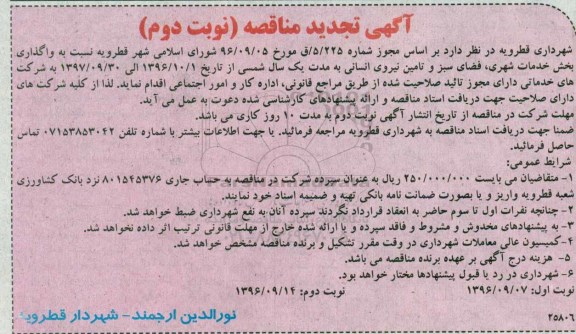 آگهی تجدید مناقصه (نوبت دوم)
شهرداری قطرویه در نظر دارد بر اساس مجوز شماره ۵/۲۲۵/ق مورخ ۹۶/۰۹/۰۵ شورای اسلامی شهر قطرویه نسبت به واگذاری
بخش خدمات شهری، فضای سبز و تامین نیروی انسانی به مدت یک سال شمسی از تاریخ ۱۳۹۶/۱۰/۱ الی ۱۳۹۷/۰۹/۳۰ به شرکت
های خدماتی دارای مجوز تائید صلاحیت شده از طریق مراجع قانونی، اداره کار و امور اجتماعی اقدام نماید. لذا از کلیه شرکت های
دارای صلاحیت جهت دریافت اسناد مناقصه و ارائه پیشنهادهای کارشناسی شده دعوت به عمل می آید.
مهلت شرکت در مناقصه از تاریخ انتشار آگهی نوبت دوم به مدت ۱۰ روز کاری می باشد.
ضمنا جهت دریافت اسناد مناقصه به شهرداری قطرویه مراجعه فرمائید. یا جهت اطلاعات بیشتر با شماره تلفن ۰۷۱۵۳۸۵۳۰۴۲ تماس
حاصل فرمائید.
شرایط عمومی:
۱- متقاضیان می بایست ۲۵۰/۰۰۰/۰۰۰ ریال به عنوان سپرده شرکت در مناقصه به حساب جاری ۸۰۱۵۴۵۳۷۶ نزد بانک کشاورزی
شعبه قطرویه واریز و یا بصورت ضمانت نامه بانکی تهیه و ضمیمه اسناد خود نمایند.
۲- چنانچه نفرات اول تا سوم حاضر به انعقاد قرارداد نگردند سپرده آنان به نفع شهرداری ضبط خواهد شد.
۳- به پیشنهادهای مخدوش و مشروط و فاقد سپرده و یا ارائه شده خارج از مهلت قانونی ترتیب اثر داده نخواهد شد.
۴-کمیسیون عالی معاملات شهرداری در وقت مقرر تشکیل و برنده مناقصه مشخص خواهد شد.
۵- هزینه درج آگهی بر عهده برنده مناقصه می باشد.
۶- شهرداری در رد یا قبول پیشنهادها مختار خواهد بود.
نوبت اول: ۱۳۹۶/۰۹/۰۷ نوبت دوم: ۱۳۹۶/۰۹/۱۴
۲۵۸۰۶ نورالدین ارجمند - شهردار قطرویه